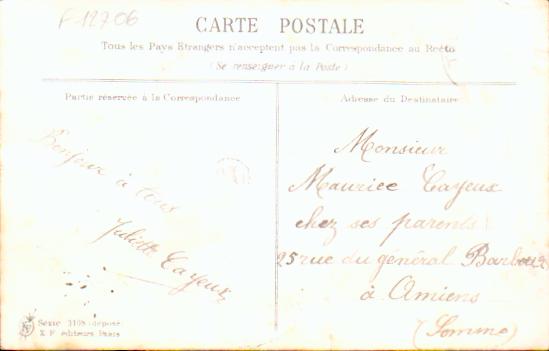 F 12706
CARTE POSTALE
Tous les Pays Etrangers n'acceptent pas la Correspondance au Recto
(Se renseigner à la Poste)
Partie réservée à la Correspondance
Adresse du Destinataire
Bonjour à tous
Juliette Cayeux
Monsieur
Maurice Cayeux
chez ses parents
25 rue du général
à Amiens
(Somme)
Série 3108 déposé
éditeurs Paris